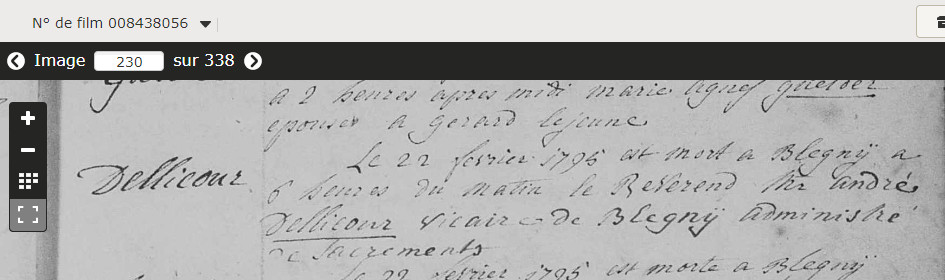 N° de film 008438056
Image 230 sur 338
a 2 heures apres midi marie Agnes guelder
epouser a gerard lejeune
Le 22 fevrier 1795 est mort a Blegnÿ a
Dellicour
6 heures du matin le Reverend Mr andré
Dellicour vicaire de Blegnÿ administré
de Sacrements
le 22 fevrier 1795 est morte a Blegnÿ